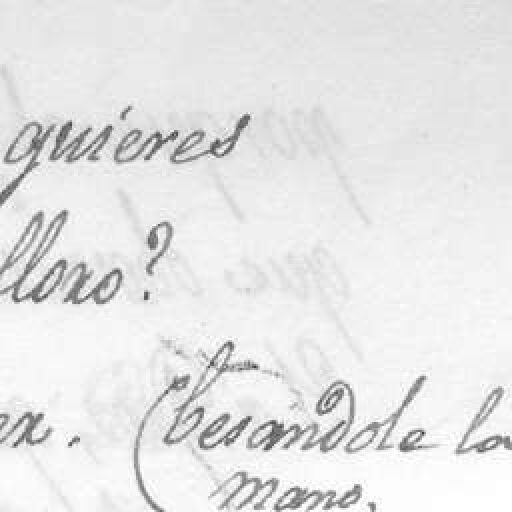 quieres
lloro?
(besandole la
mano.